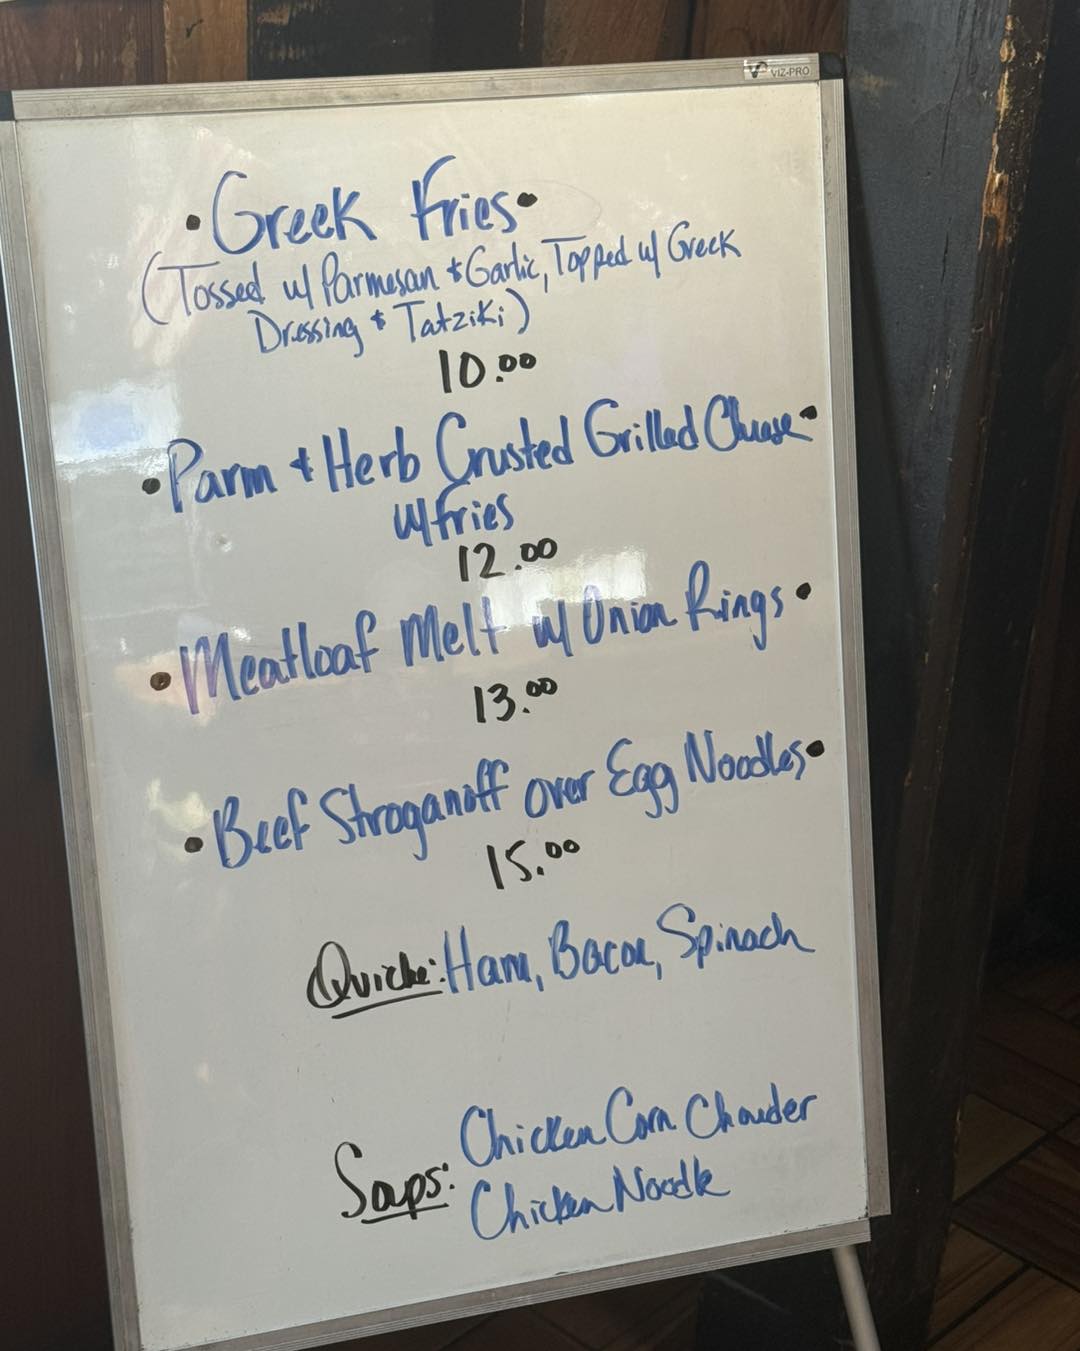 VIZ-PRO
• Greek Fries •
(Tossed w/ Parmesan & Garlic, Topped w/ Greek
Dressing & Tatziki)
10.00
• Parm & Herb Crusted Grilled Cheese •
w/ fries
12.00
• Meatloaf Melt w/ Onion Rings •
13.00
• Beef Stroganoff over Egg Noodles •
15.00
Quiche: Ham, Bacon, Spinach
Soups: Chicken Corn Chowder
Chicken Noodle